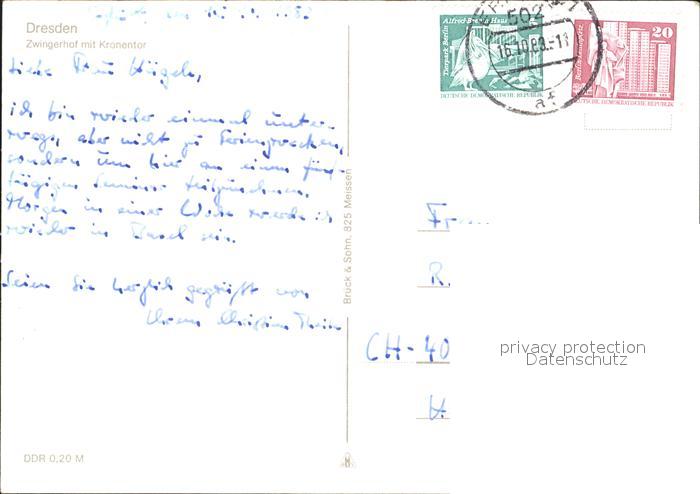 Dresden
Zwingerhof mit Kronentor
Liebe Frau Hügeli,
ich bin wieder einmal unter-
wegs, aber nicht zu Ferienzwecken,
sondern um hier an einem fünf-
tägigen Seminar teilzunehmen.
Morgen in einer Woche werde ich
wieder in Basel sein.
Seien Sie herzlich gegrüsst von
Ihrem Christian
DDR 0,20 M
Bruck & Sohn, 825 Meissen
Alfred-Brehm-Haus
Tierpark Berlin
DEUTSCHE DEMOKRATISCHE REPUBLIK
502
16.10.83.-11
af
20
Berlin-Leninplatz
DEUTSCHE DEMOKRATISCHE REPUBLIK
Frau
R.
CH-40
privacy protection
Datenschutz